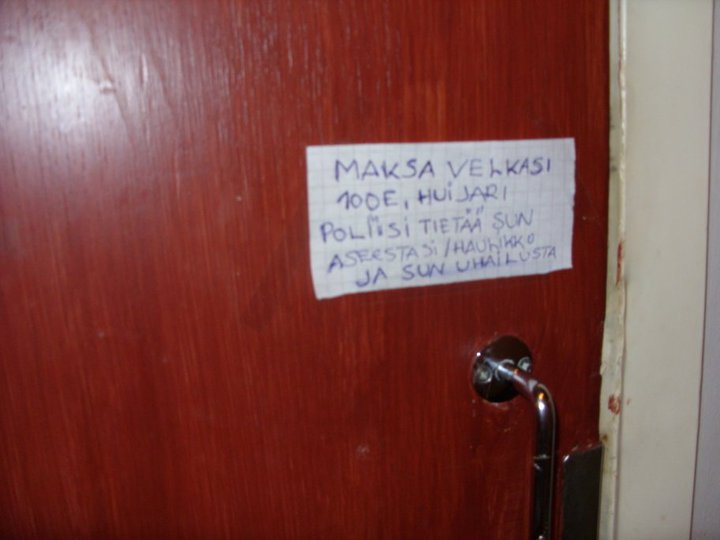 MAKSA VELKASI
100E, HUIJARI
POLIISI TIETÄÄ SUN
ASEESTASI/HAULIKKO
JA SUN UHAILUSTA